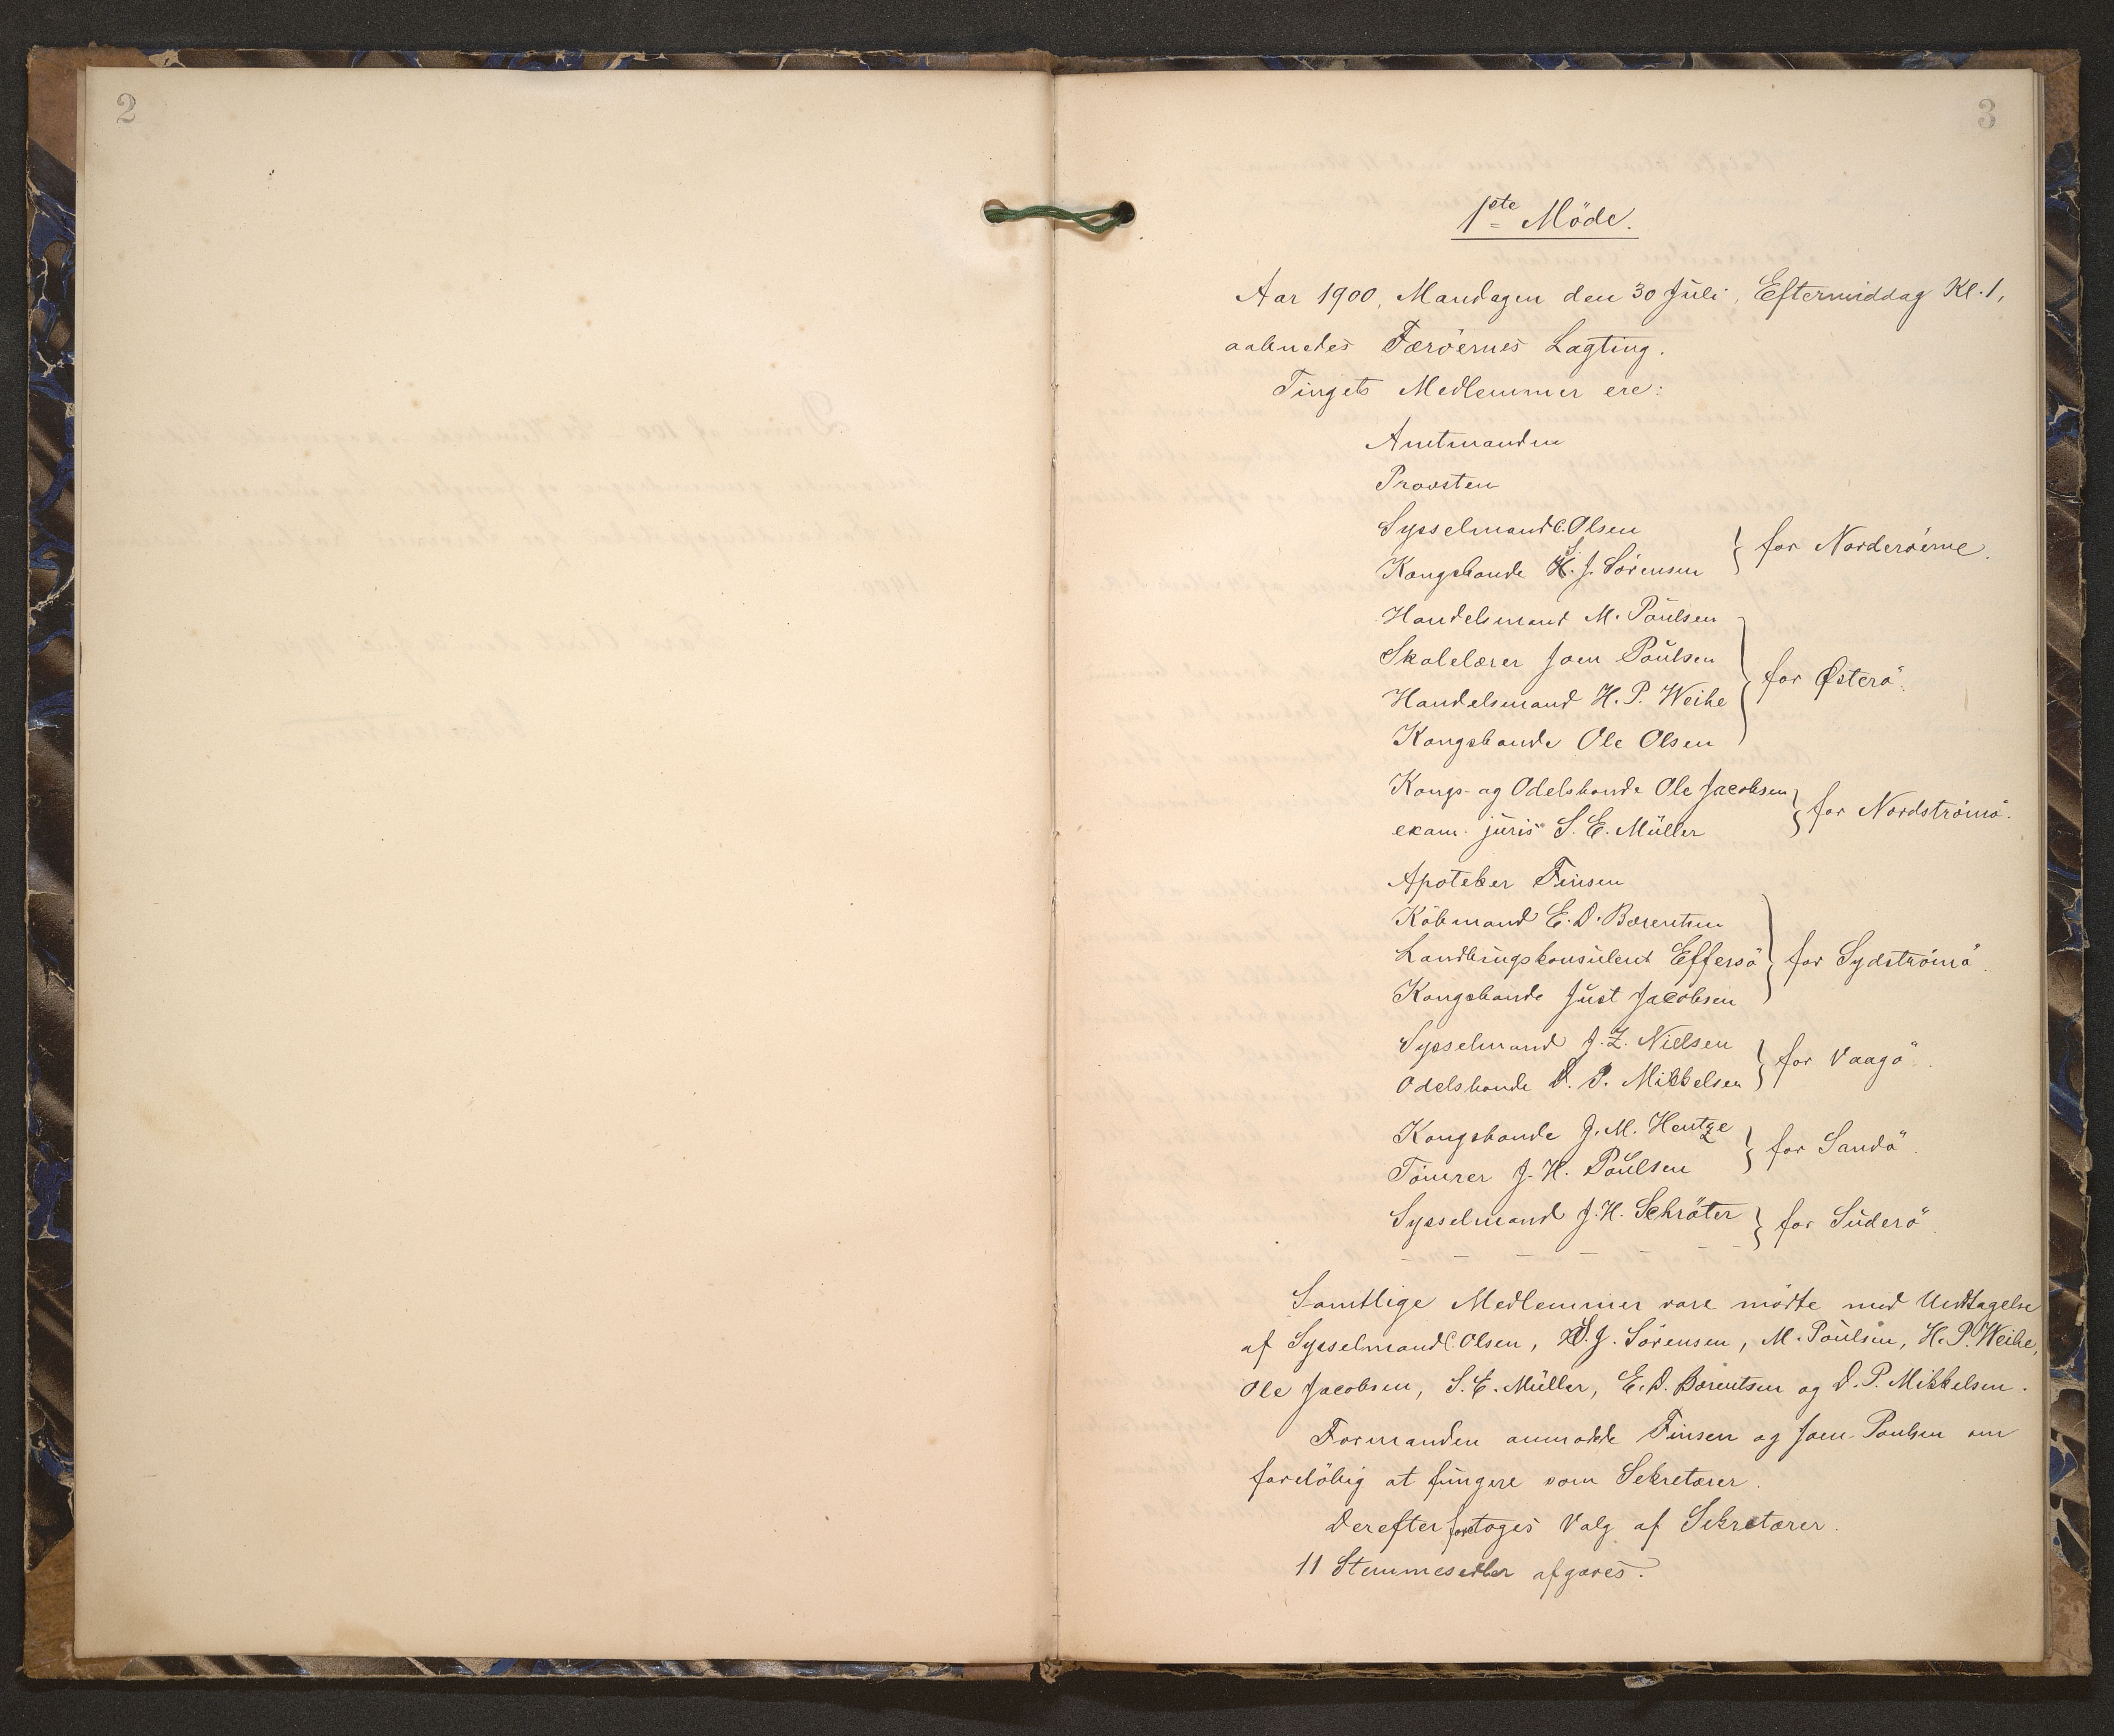 2
3
1ste Møde.
Aar 1900, Mandagen den 30 Juli, Eftermiddag Kl. 1,
aabnedes Færöernes Lagting.
Tingets Medlemmer ere:
Amtmanden
Provsten
Sysselmand C. Olsen
Kongsbonde S. J. Sörensen } for Norderöerne.
Handelsmand M. Poulsen
Skolelærer Joen Poulsen
Handelsmand H. P. Weihe } for Østerö.
Kongsbonde Ole Olsen
Kongs- og Odelsbonde Ole Jacobsen
exam. juris S. E. Müller } for Nordströmö.
Apoteker Finsen
Köbmand E. D. Bærentsen
Landbrugskonsulent Effersö } for Sydströmö.
Kongsbonde Just Jacobsen
Sysselmand J. Z. Nielsen
Odelsbonde D. P. Mikkelsen } for Vaagö.
Kongsbonde J. M. Hentze
Tömrer J. H. Poulsen } for Sandö.
Sysselmand J. H. Schröter } for Suderö.
Samtlige Medlemmer vare mödte med Undtagelse
af Sysselmand C. Olsen, S. J. Sörensen, M. Poulsen, H. P. Weihe,
Ole Jacobsen, S. E. Müller, E. D. Bærentsen og D. P. Mikkelsen.
Formanden anmodede Finsen og Joen Poulsen om
forelöbig at fungere som Sekretærer.
Derefter foretoges Valg af Sekretærer.
11 Stemmesedler afgaves.